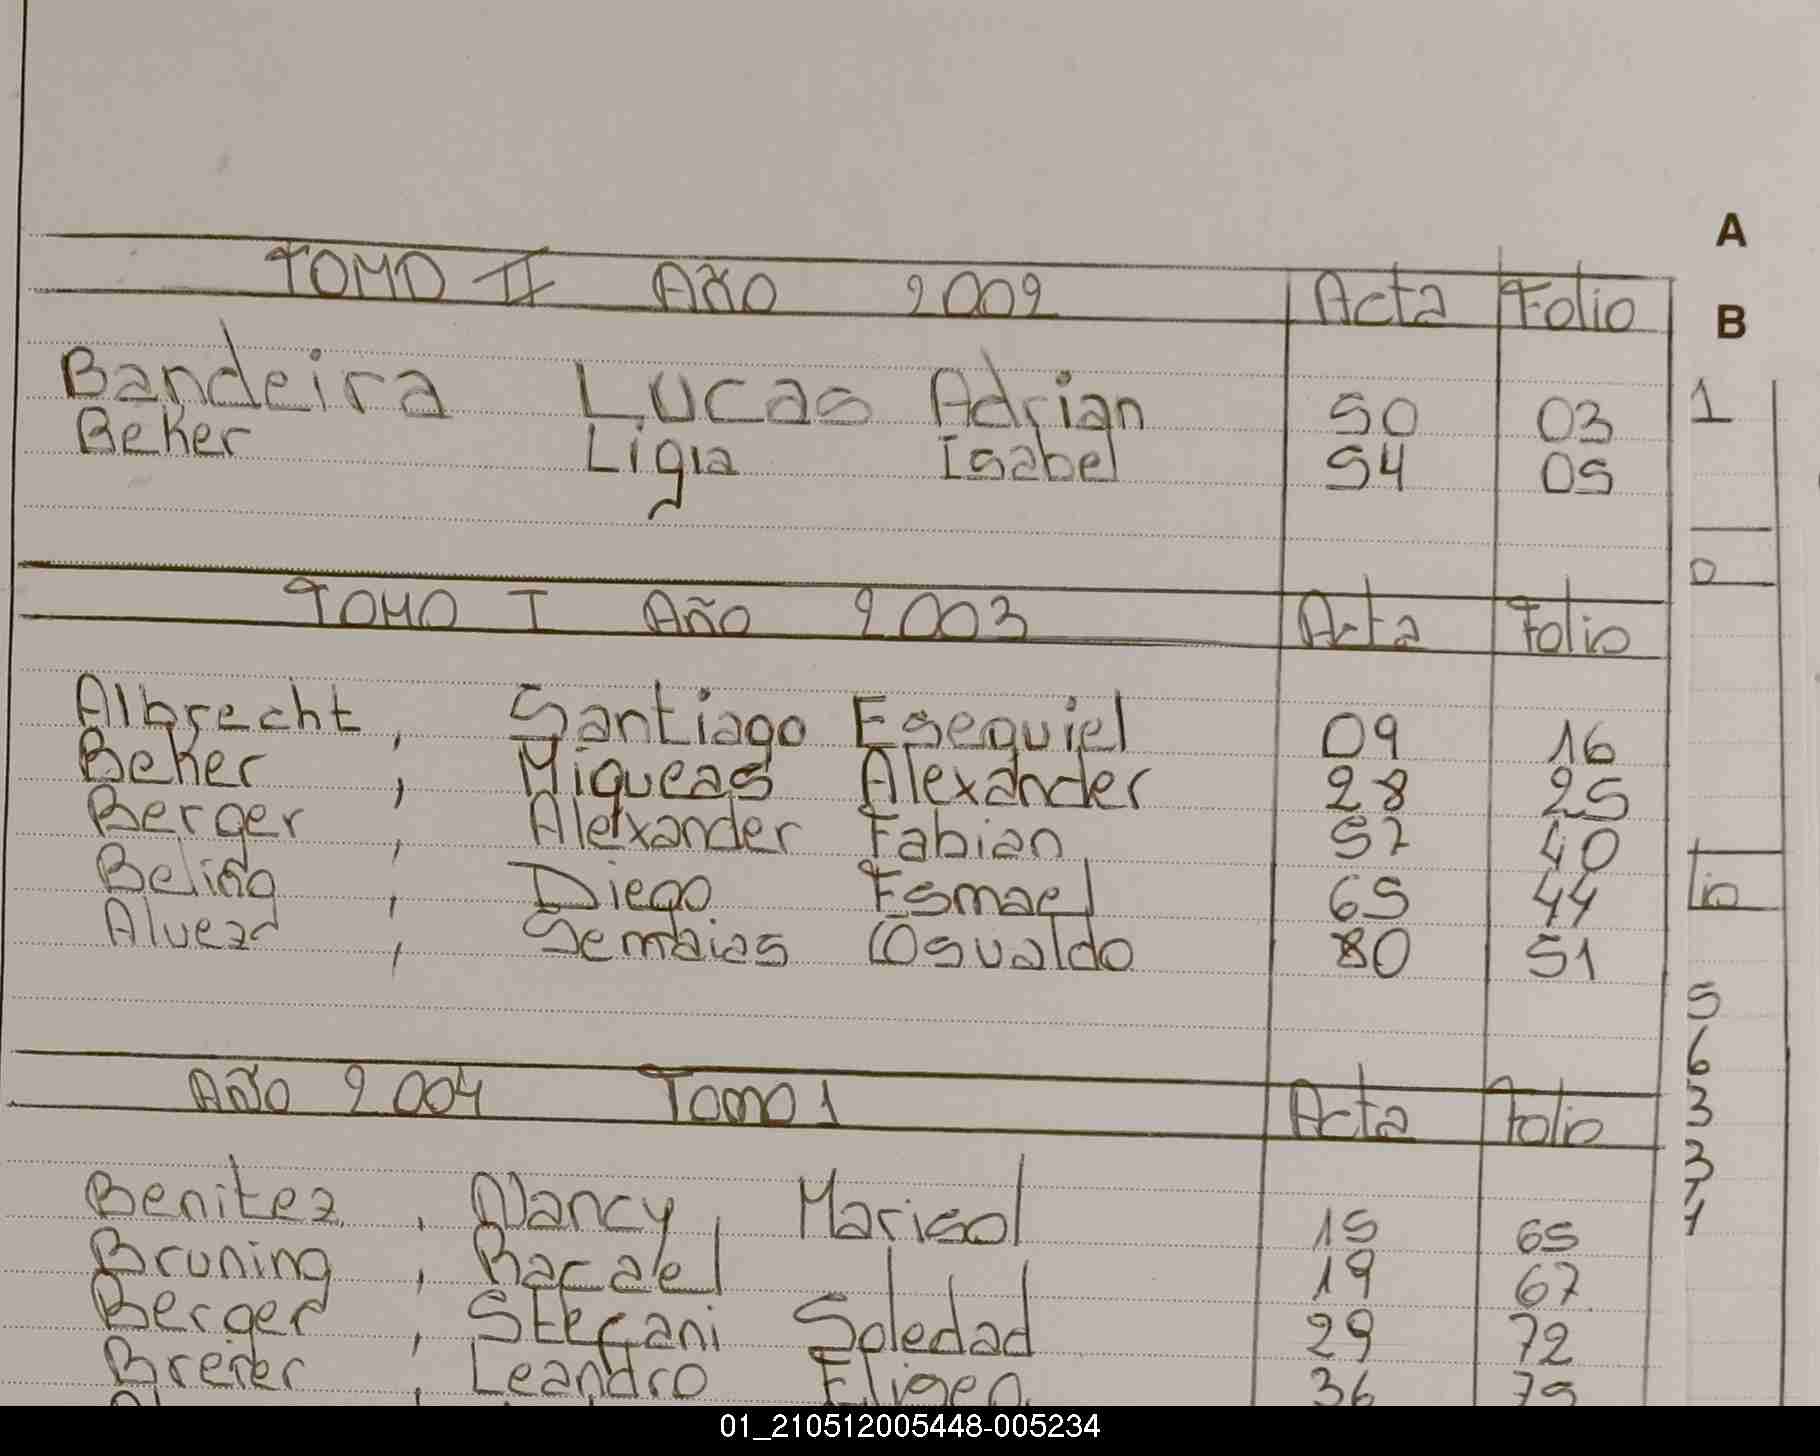 TOMO II Año 2002 Acta Folio
Bandeira Lucas Adrian 50 03
Beker Ligia Isabel 54 05
TOMO I Año 2003 Acta Folio
Albrecht, Santiago Esequiel 09 16
Beker, Miqueas Alexander 28 25
Berger, Alexander Fabian 57 40
Beling, Diego Esmael 65 44
Alvez, Semaias Osvaldo 80 51
Año 2004 Tomo 1 Acta Folio
Benitez, Nancy Marisol 15 65
Bruning, 19 67
Berger, Stefani Soledad 29 72
Breier, Leandro 36
A
B
1
lio
5
6
3
3
01_210512005448-005234